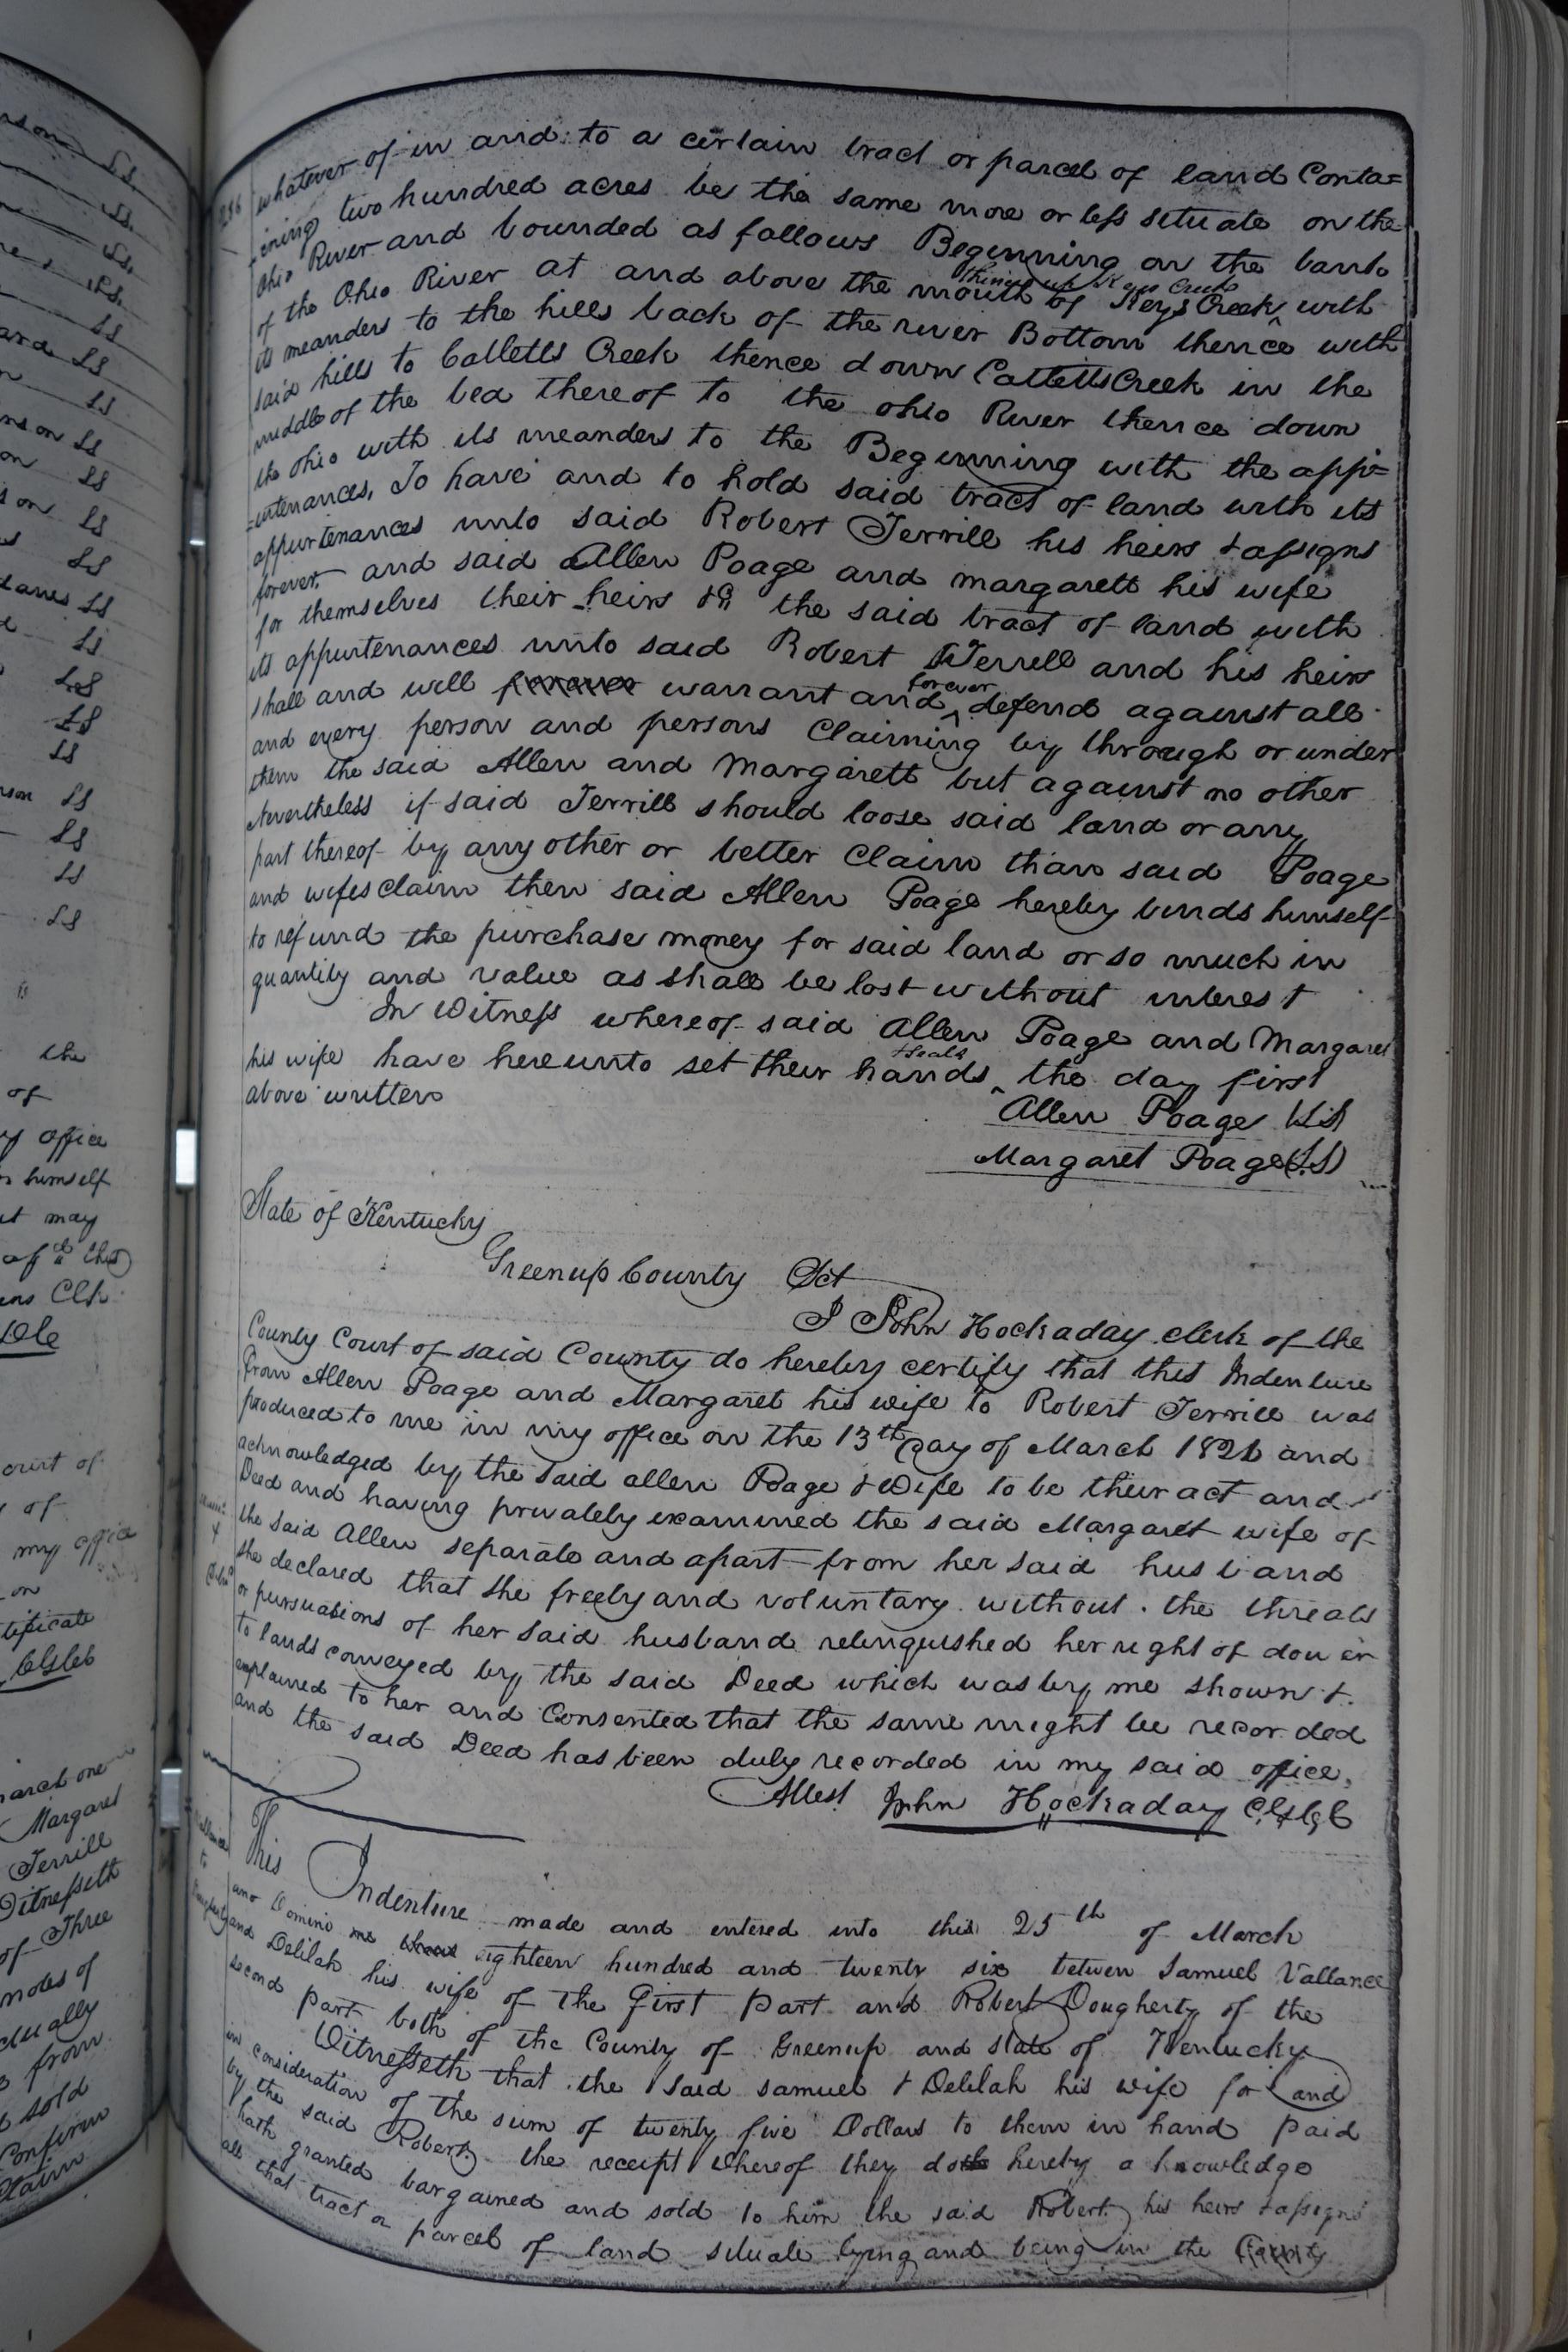 whatever of in and to a certain tract or parcel of land Conta=
ining two hundred acres be the same more or less situate on the
Ohio River and bounded as follows Beginning on the bank
of the Ohio River at and above the mouth of Keys Creek with
thence up Keys Creek
its meanders to the hills back of the river Bottom thence with
said hills to Catletts Creek thence down Catletts Creek in the
middle of the bed thereof to the ohio River thence down
the ohio with its meanders to the Beginning with the app=
=urtenances, To have and to hold said tract of land with its
appurtenances unto said Robert Terrill his heirs & assigns
forever, and said Allen Poage and margarett his wife
for themselves their heirs &c the said tract of land with
its appurtenances unto said Robert Terrell and his heirs
shall and will forever warrant and forever defend against all
and every person and persons Claiming by through or under
them the said Allen and Margarett but against no other
Nevertheless if said Terrill should loose said land or any
part thereof by any other or better Claim than said Poage
and wifes claim then said Allen Poage hereby binds himself
to refund the purchase money for said land or so much in
quantity and value as shall be lost without interest
In Witness whereof said Allen Poage and Margaret
his wife have hereunto set their hands & seals the day first
above written
Allen Poage (LS)
Margaret Poage (LS)
State of Kentucky
Greenup County Sct
I John Hockaday clerk of the
County Court of said County do hereby certify that this Indenture
from Allen Poage and Margaret his wife to Robert Terrill was
produced to me in my office on the 13th day of March 1826 and
acknowledged by the said allen Poage & Wife to be their act and
Deed and having privately examined the said Margaret wife of
the said Allen separate and apart from her said husband
she declared that she freely and voluntary without the threats
or pursuasions of her said husband relinquished her right of dower
to lands conveyed by the said Deed which was by me shown &
explained to her and Consented that the same might be recorded
and the said Deed has been duly recorded in my said office,
Attest John Hockaday
This Indenture made and entered into this 25th of March
Domini eighteen hundred and twenty six between Samuel Vallance
and Delilah his wife of the first part and Robert Dougherty of the
second part both of the County of Greenup and state of Kentucky
Witnesseth that the said samuel & Delilah his wife for and
in consideration of the sum of twenty five Dollars to them in hand paid
by the said Robert the receipt whereof they doth hereby a knowledge
hath granted bargained and sold to him the said Robert his heirs & assigns
all that tract or parcel of land situate lying and being in the County